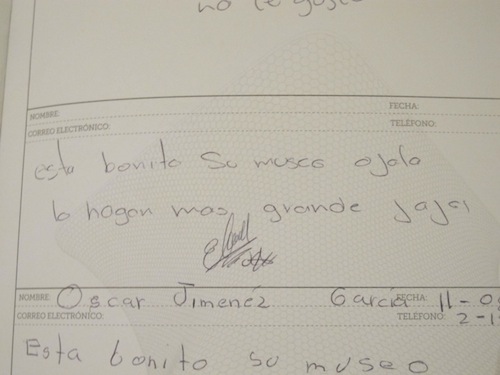 no te gust
NOMBRE
FECHA:
CORREO ELECTRÓNICO:
TELÉFONO:
esta bonito su museo ojala
lo hagan mas grande jaja
NOMBRE: Oscar Jimenéz Garcia FECHA: 11-0
CORREO ELECTRÓNICO:
TELÉFONO: 2-1
Esta bonito su museo